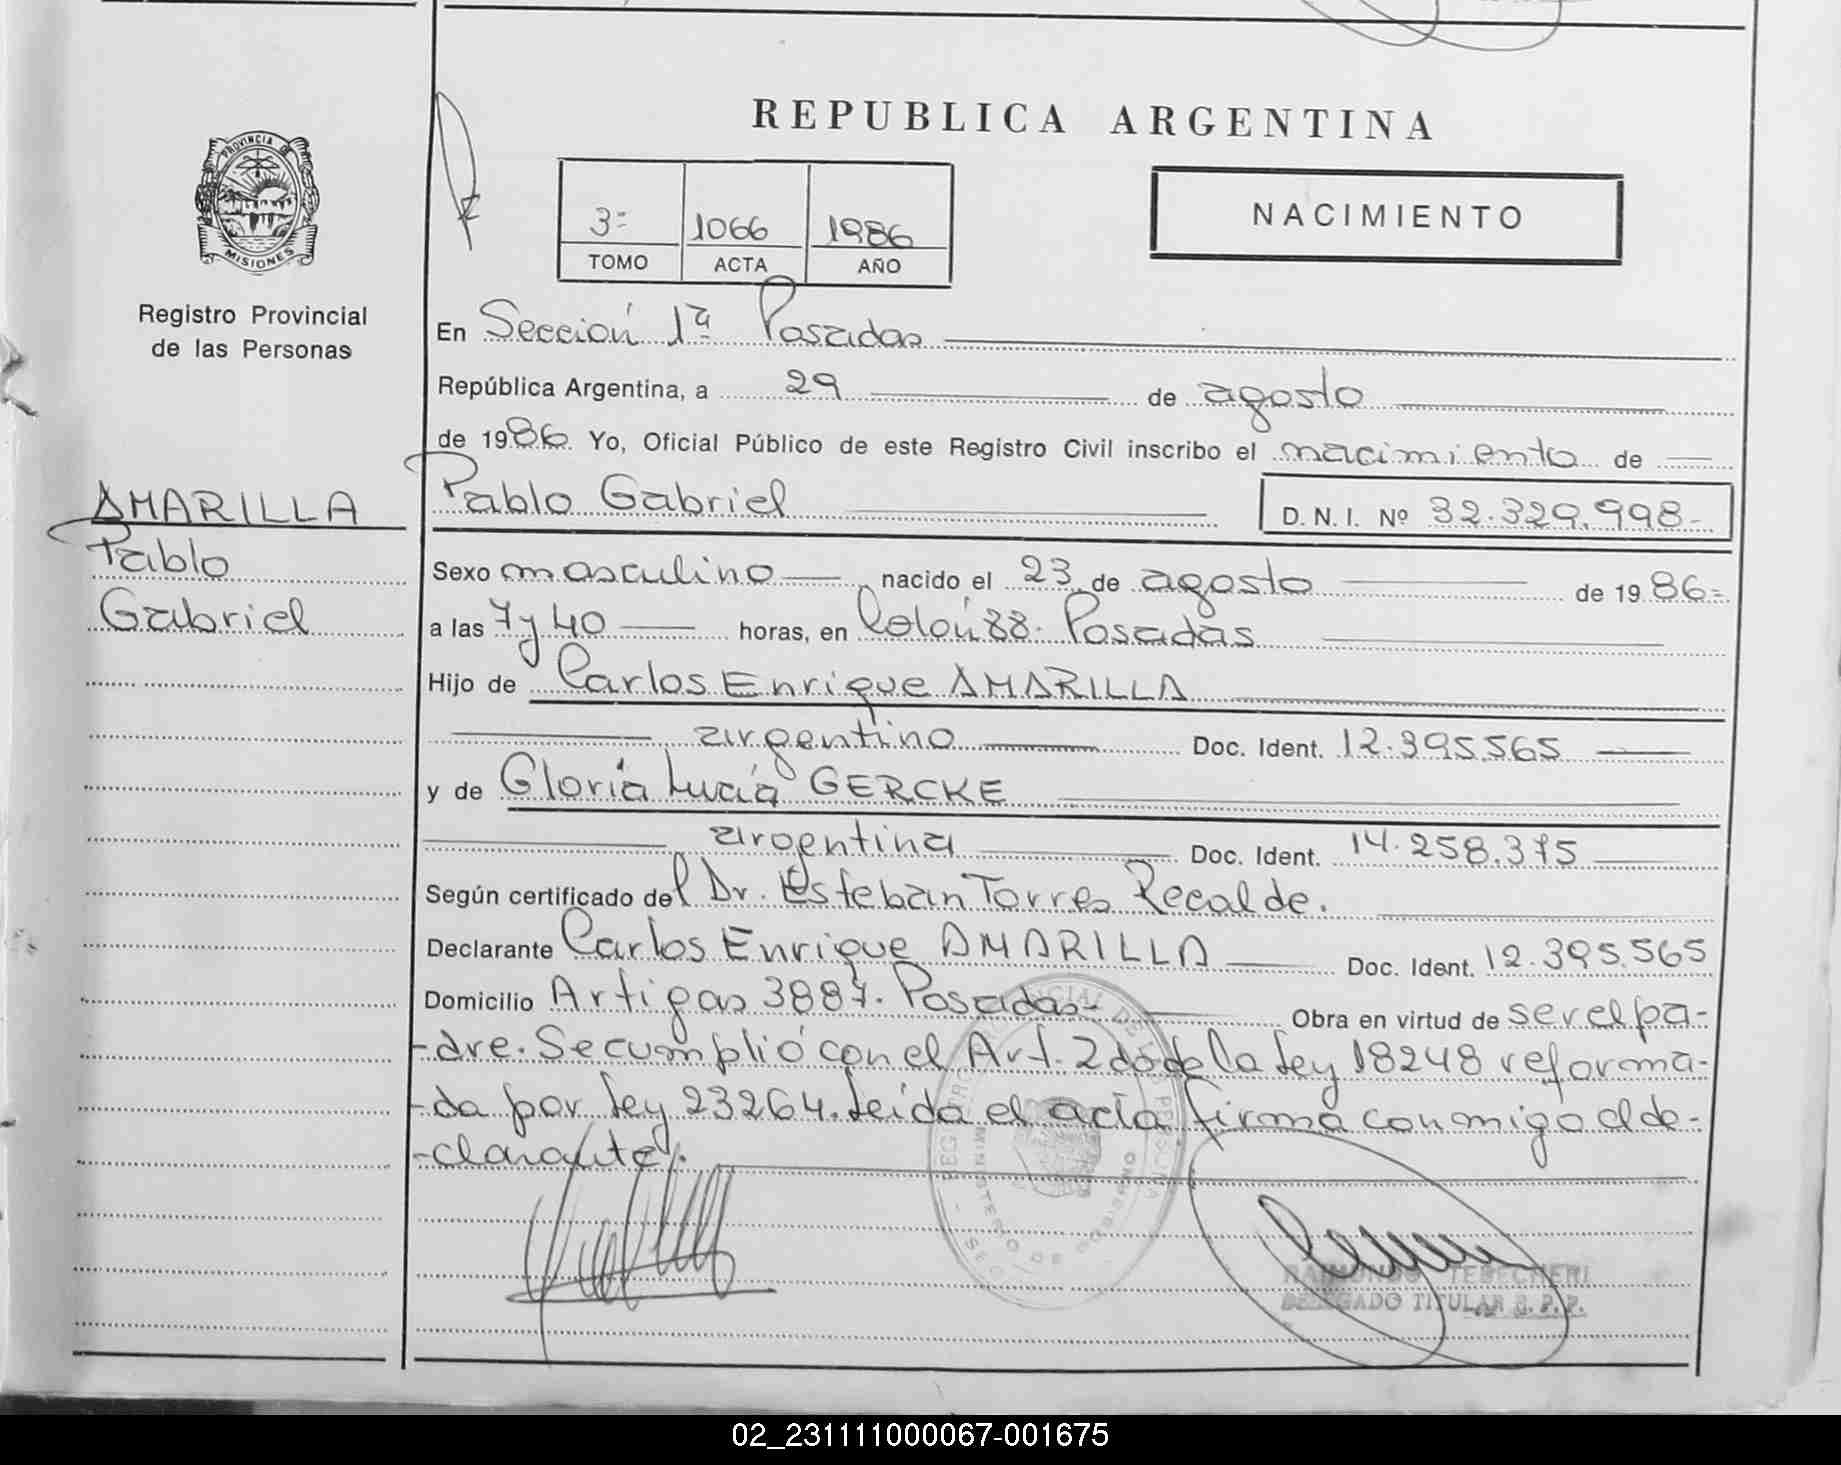 REPUBLICA ARGENTINA
PROVINCIA DE
MISIONES
Registro Provincial
de las Personas
3º 1066 1986
TOMO ACTA AÑO
NACIMIENTO
En Sección 1ª Posadas
República Argentina, a 29 de agosto
de 1986. Yo, Oficial Público de este Registro Civil inscribo el nacimiento de
AMARILLA
Pablo
Gabriel
Pablo Gabriel D. N. I. Nº 32.329.998-
Sexo masculino nacido el 23 de agosto de 1986=
a las 7 y 40 horas, en Colón 88. Posadas
Hijo de Carlos Enrique AMARILLA
argentino Doc. Ident. 12.395.565
y de Gloria Lucía GERCKE
argentina Doc. Ident. 14.258.375
Según certificado del Dr. Esteban Torres Recalde.
Declarante Carlos Enrique AMARILLA Doc. Ident. 12.395.565
Domicilio Artigas 3887. Posadas- Obra en virtud de ser el pa-
-dre. Se cumplió con el Art. 2do de la Ley 18248 reforma-
-da por Ley 23264. Leída el acta firma conmigo el de-
-clarante.
RAIMUNDO TEBECHERI
DELEGADO TITULAR R.P.P.
02_231111000067-001675